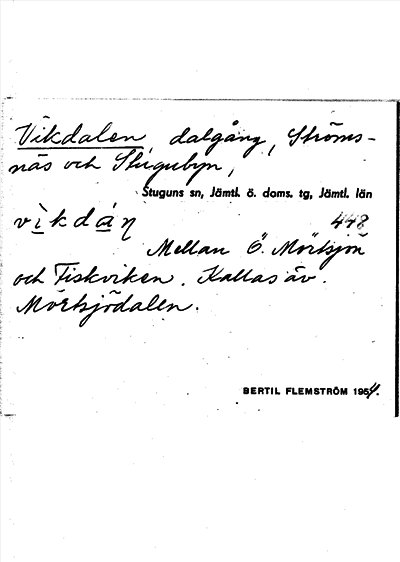 Vikdalen, dalgång, Ströms-
näs och Stugubyn,
Stuguns sn, Jämtl. ö. doms. tg, Jämtl. län
vìkdàn̥ 448
Mellan Ö. Mörtsjön
och Fiskviken. Kallas äv.
Mörtsjödalen.
BERTIL FLEMSTRÖM 1954.